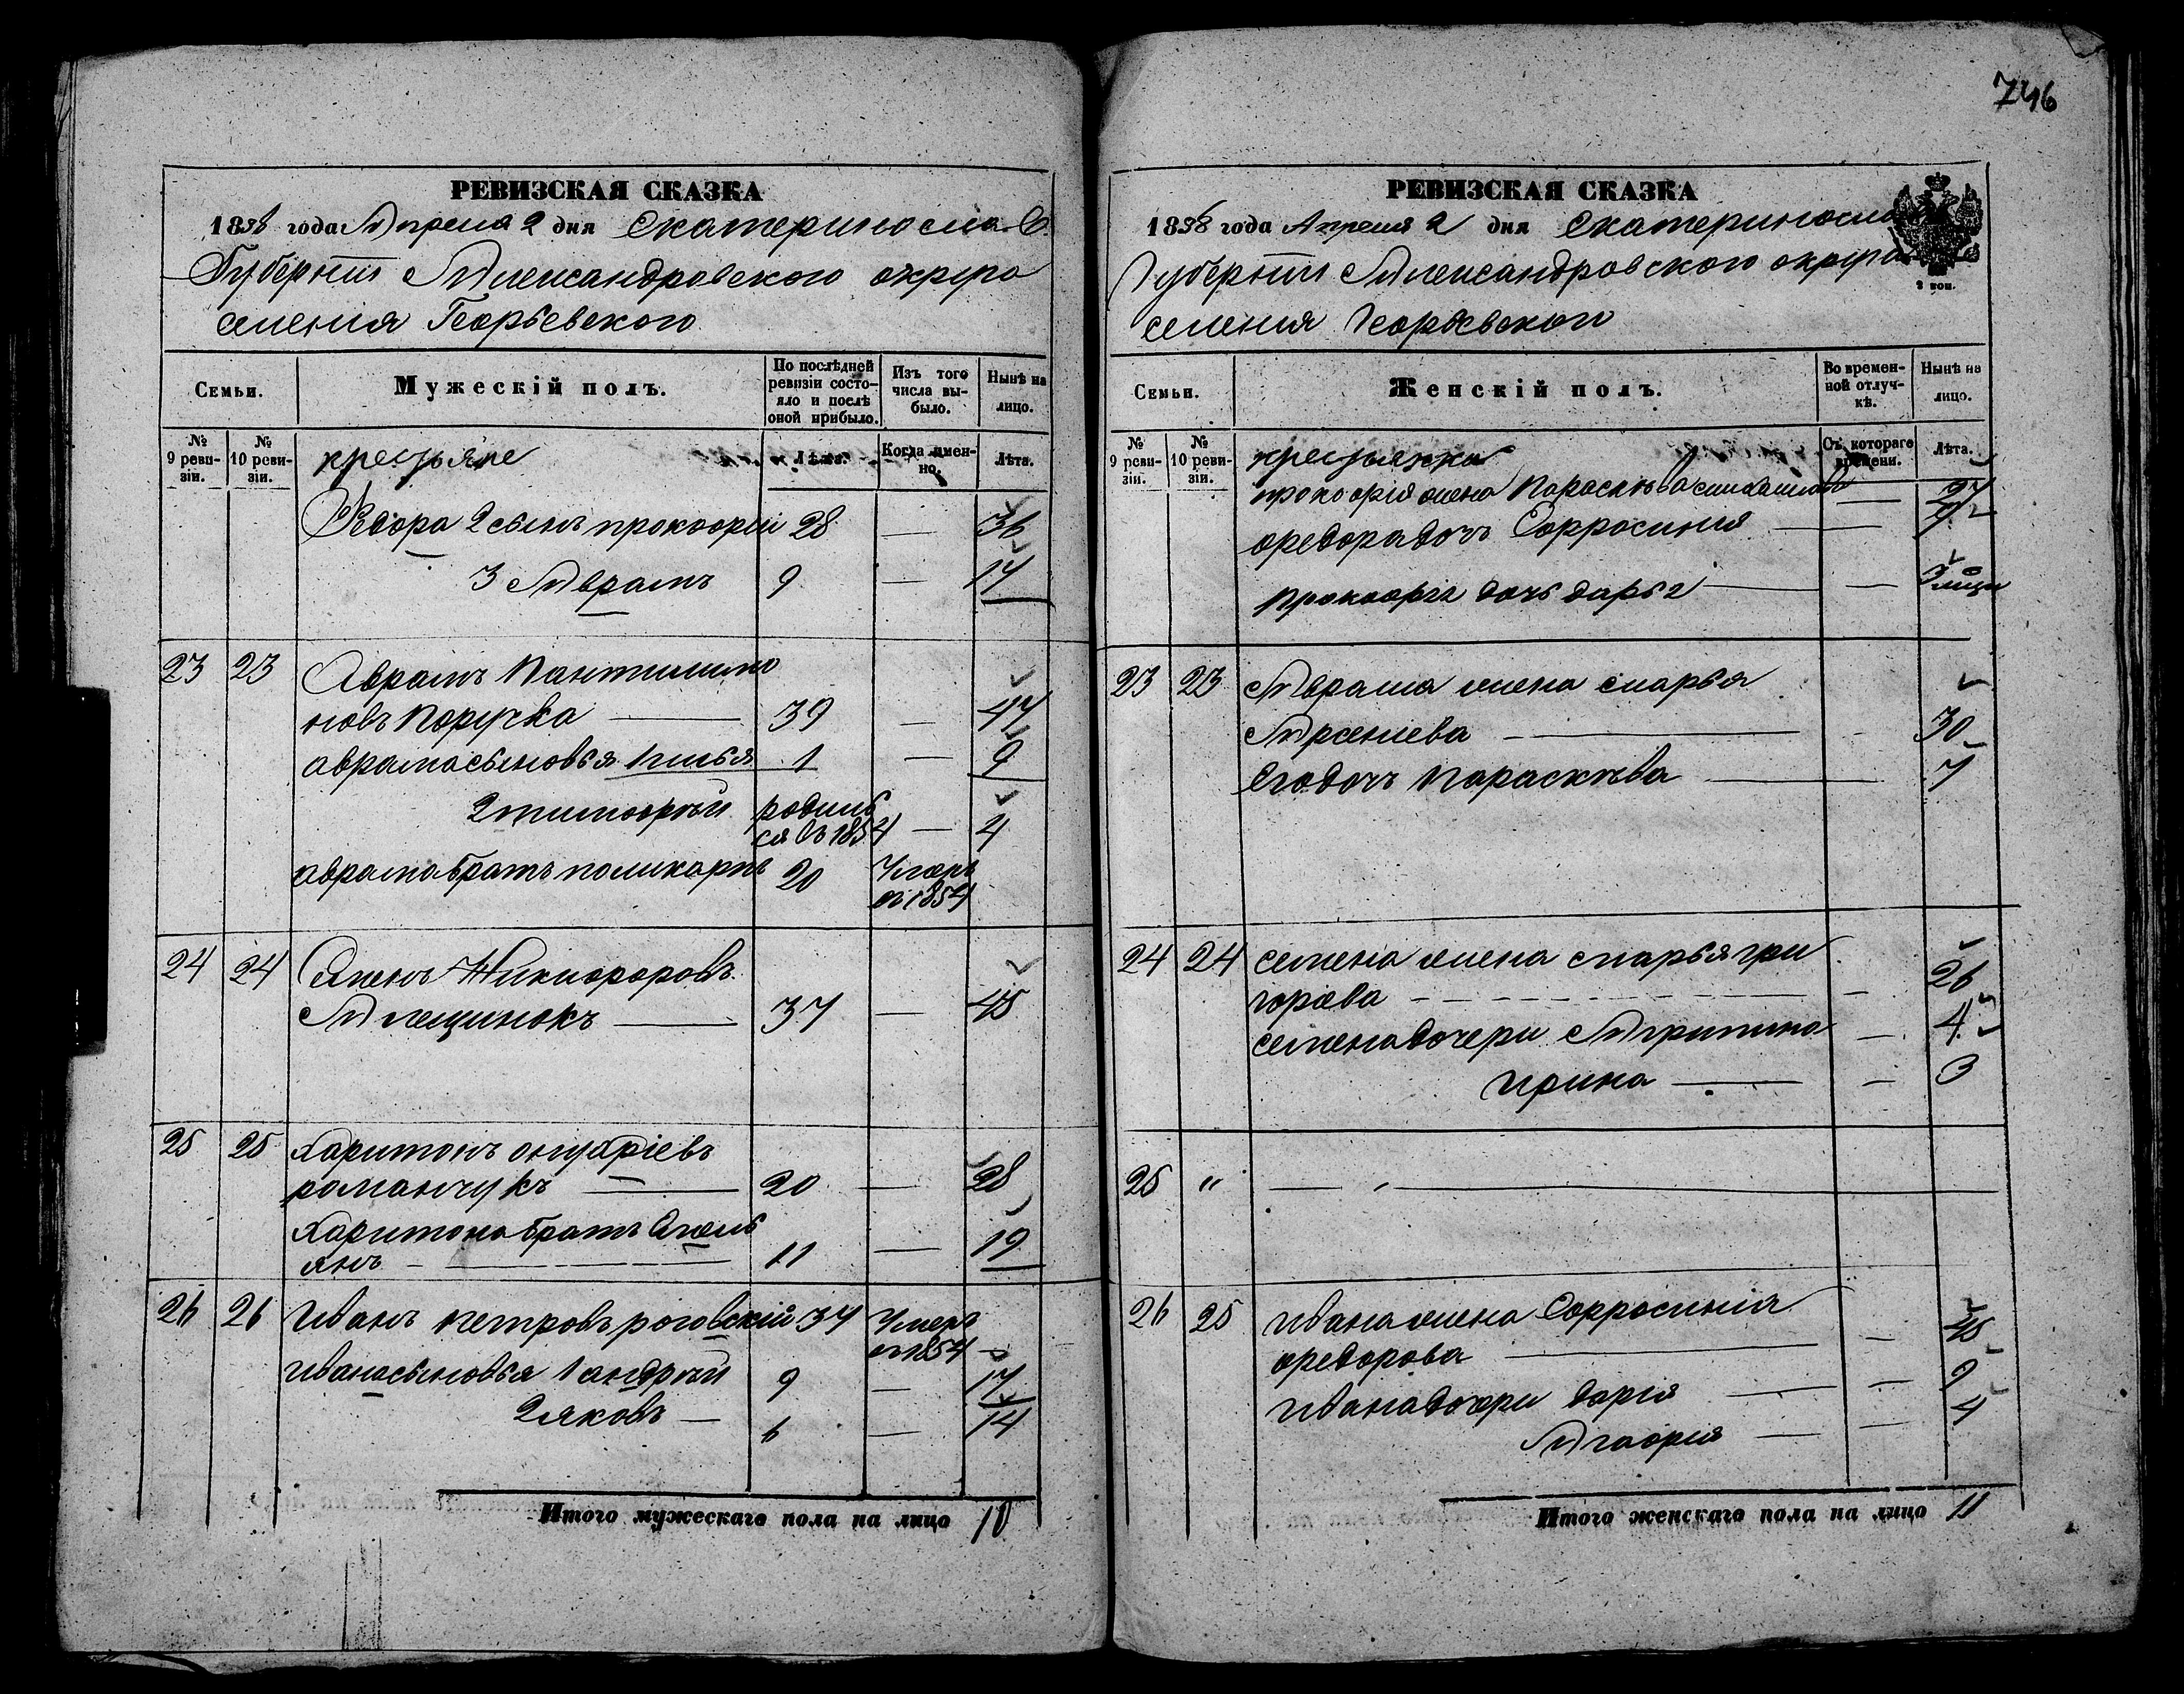 746
РЕВИЗСКАЯ СКАЗКА
1858 года Апреля 2 дня Екатеринослав.
Губерніи Александровского округа
селенія Георьевского
Семьи.
Мужескій полъ.
По послѣдней ревизіи состояло и послѣ оной прибыло.
Изъ того числа выбыло.
Нынѣ на лицо.
№ 9 ревизіи.
№ 10 ревизіи.
крестьяне
Лѣта.
Когда именно.
Лѣта.
Федора 2 сынъ прокофій 28 — 36
3 Аврамъ 9 — 17
23 23 Аврамъ Пантилимо
новъ Поручка — 39 — 47
аврама сыновья 1 илья 1 — 9
2 тимофѣй родил
ся въ 1854 — 4
аврама братъ поликарпъ 20 Умеръ
въ 1854
24 24 Семенъ Никифоровъ
— 37 — 45
25 25 Харитонъ
романчукъ — 20 — 28
Харитона братъ Емель
янъ — 11 — 19
26 26 Иванъ петровъ роговскій 34 Умеръ
въ 1854 —
ивана сыновья 1 андрѣй 9 — 17
2 яковъ — 6 — 14
Итого мужескаго пола на лицо 10
РЕВИЗСКАЯ СКАЗКА
1858 года Апреля 2 дня Екатеринослав
Губерніи Александровского округа
селенія Георьевского
2 коп.
Семьи.
Женскій полъ.
Во временной отлучкѣ.
Нынѣ на лицо.
№ 9 ревизіи.
№ 10 ревизіи.
крестьянки
Съ котораго времени.
Лѣта.
прокофія жена Параскѣва — 27
федора дочъ Ефросинія —
прокофія дочь дарья — — 3
23 23 Аврама жена марья
Арсениева — - 30
Его дочъ параскѣва — 7
24 24 семена жена марья гри
горієва — - 26
семена дочери Агрипина - 4
ирина — - 3
25 " — " —
26 25 ивана жена Ефросинія
федорова — — 45
ивана дочери дарія — — 9
Агафія — — 4
Итого женскаго пола на лицо 11